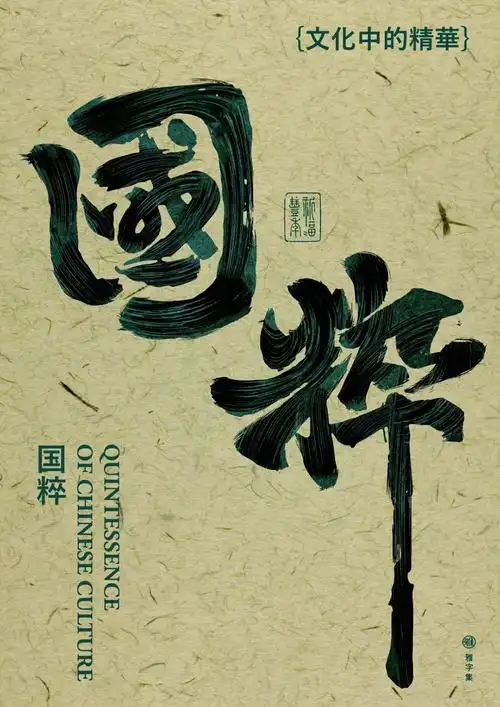 {文化中的精華}
國粹
国粹
QUINTESSENCE
OF CHINESE CULTURE
雅字集